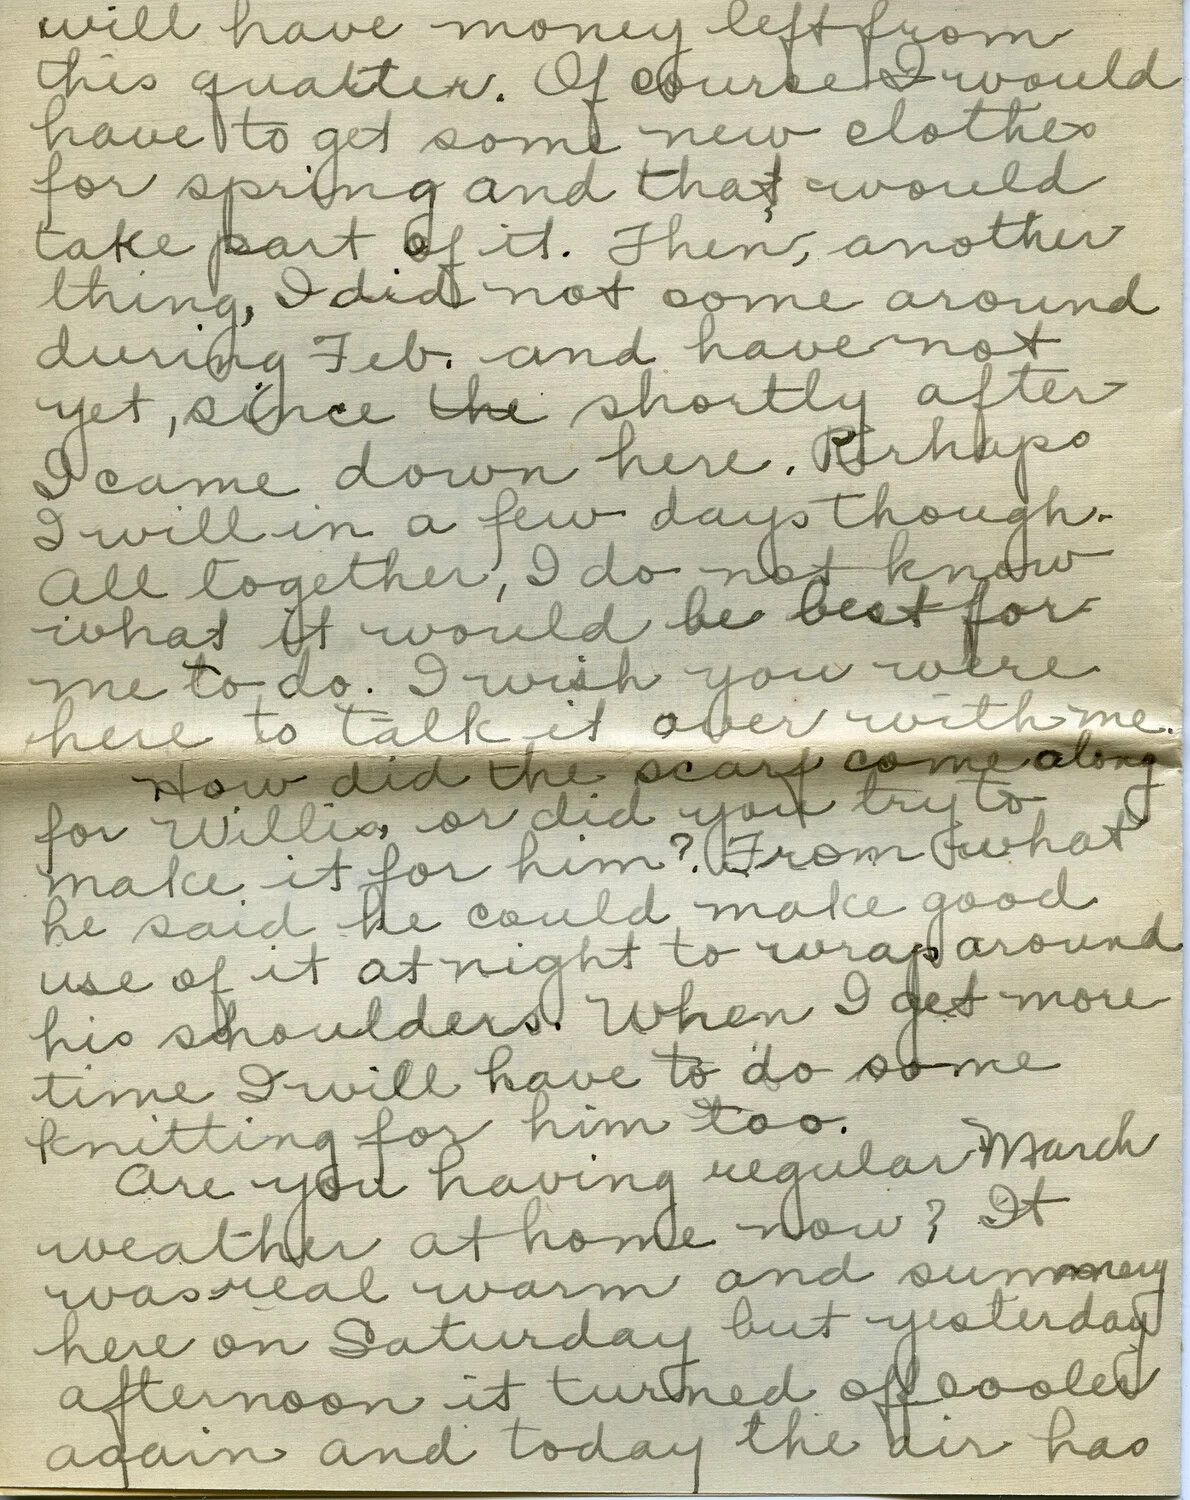 will have money left from
this quarter. Of course I would
have to get some new clothes
for spring and that would
take part of it. Then, another
thing, I did not come around
during Feb. and have not
yet, since the shortly after
I came down here. Perhaps
I will in a few days though.
All together, I do not know
what it would be best for
me to do. I wish you were
here to talk it over with me.
How did the scarf come along
for Willis, or did you try to
make it for him? From what
he said he could make good
use of it at night to wrap around
his shoulders. When I get more
time I will have to do some
knitting for him too.
Are you having regular March
weather at home now? It
was real warm and summery
here on Saturday but yesterday
afternoon it turned off cooler
again and today the air has